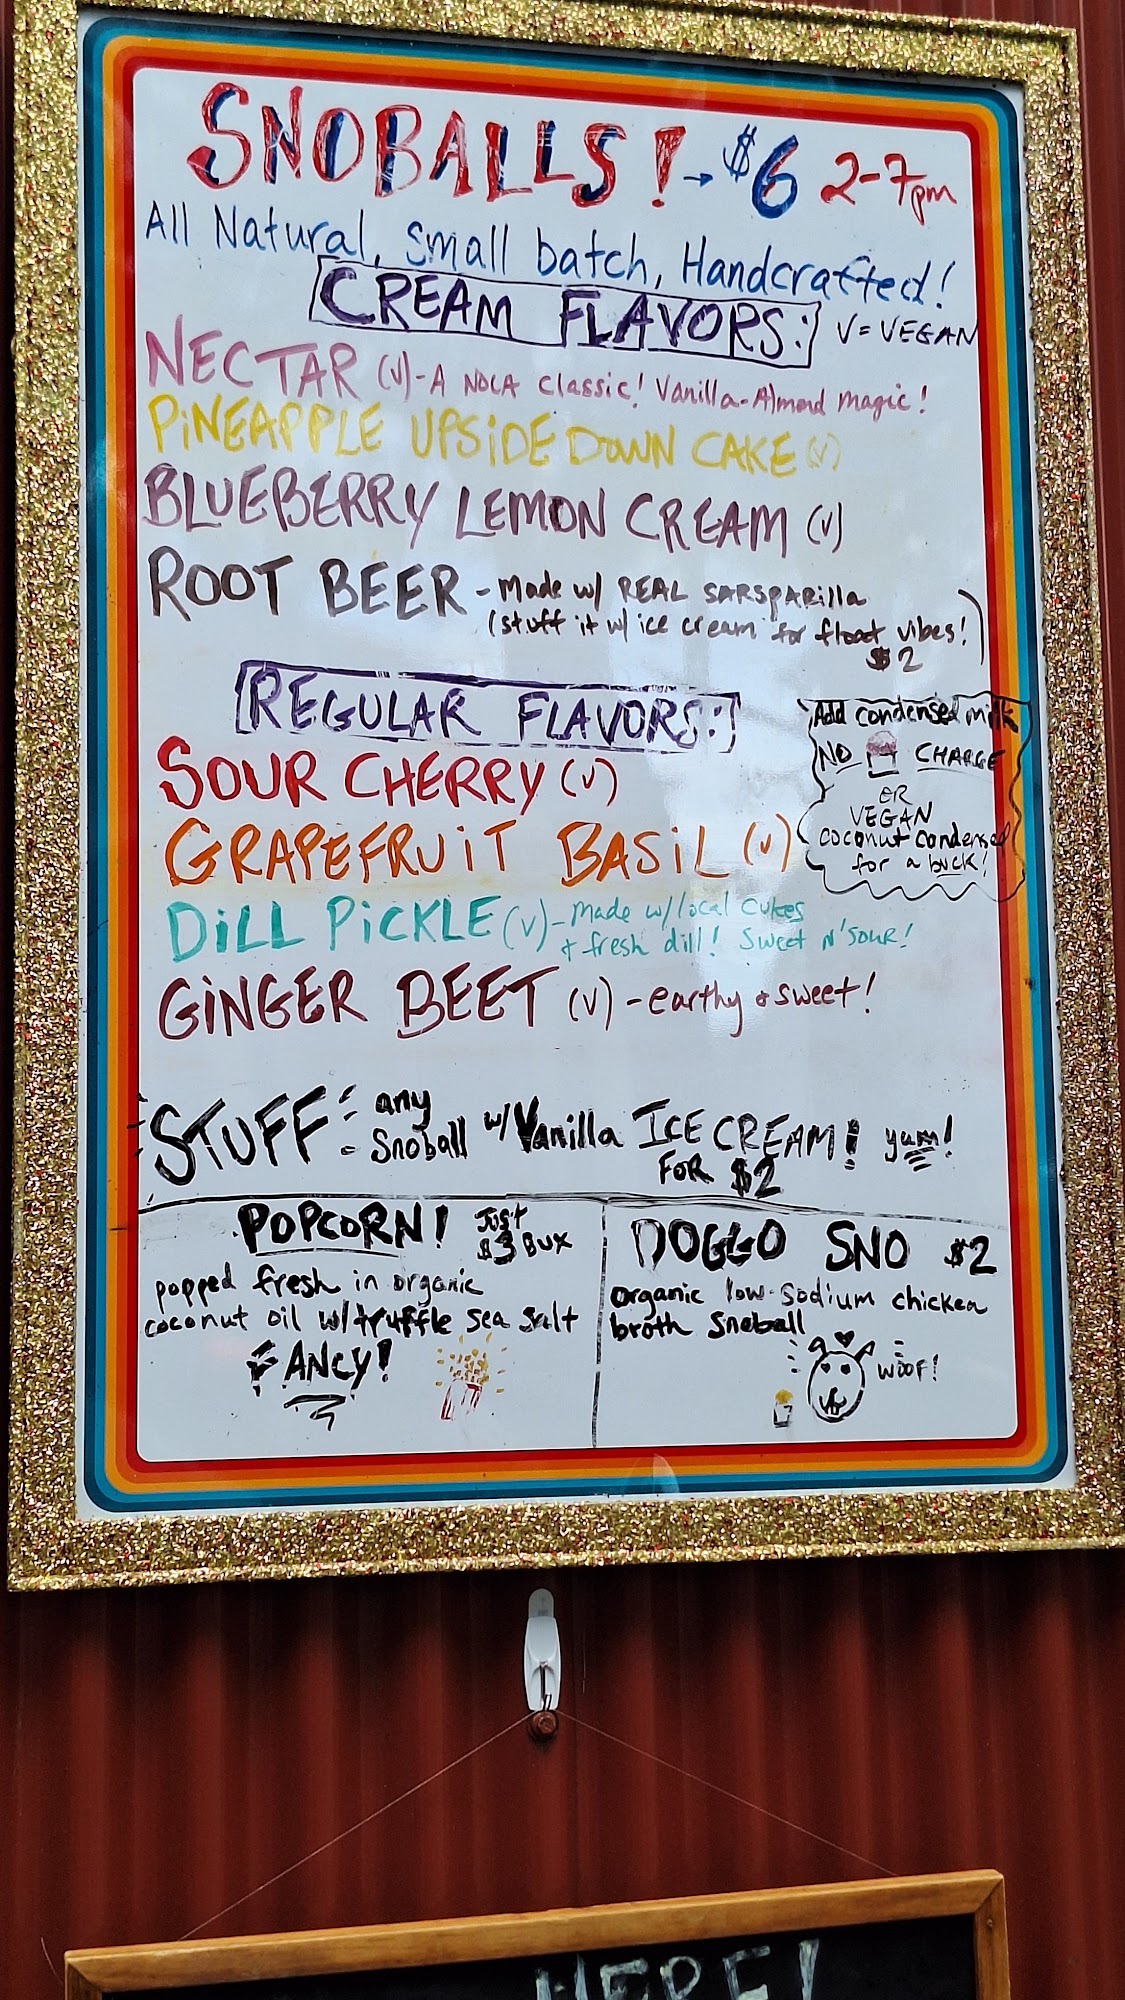 SNOBALLS! → $6 2-7pm
All Natural, small batch, Handcrafted!
CREAM FLAVORS: V = VEGAN
NECTAR (v) - A NOLA classic! Vanilla-Almond magic!
PiNEAPPLE UPSiDE DOWN CAKE (v)
BLUEBERRY LEMON CREAM (v)
ROOT BEER - Made w/ REAL SARSPARilla
(stuff it w/ ice cream for float vibes!)
$2
REGULAR FLAVORS:
Add condensed milk
NO CHARGE
OR
VEGAN
coconut condensed
for a buck!
SOUR CHERRY (v)
GRAPEFRUiT BASiL (v)
DiLL PiCKLE (v) - Made w/ local cukes
+ fresh dill! Sweet N' SOUR!
GiNGER BEET (v) - earthy & sweet!
STUFF any
Snoball w/ Vanilla ICE CREAM! yum!
FOR $2
POPCORN! JUST
$3 BUX
popped fresh in organic
coconut oil w/ truffle sea salt
FANCY!
DOGGO SNO $2
organic low-sodium chicken
broth Snoball
WOOF!
HERE!